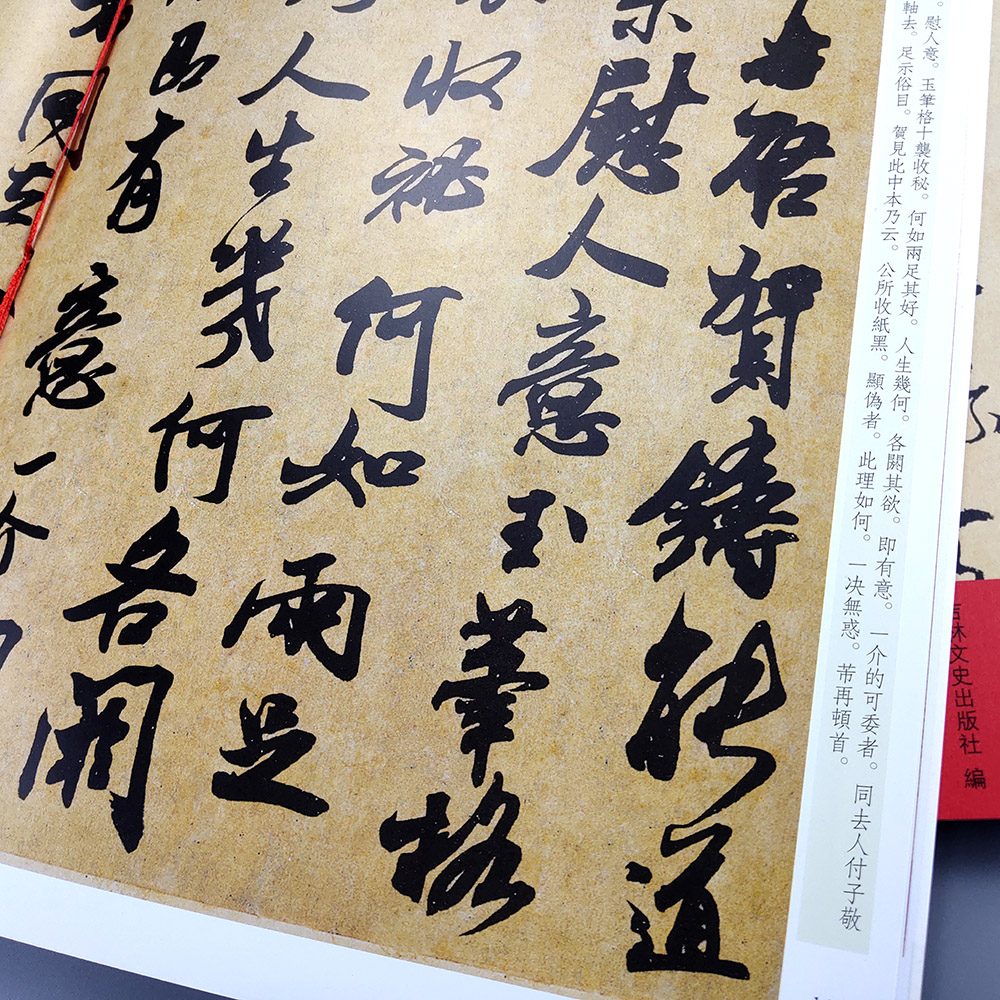 吉林文史出版社 編
。慰人意。玉筆格十襲收秘。何如兩足其好。人生幾何。各闕其欲。即有意。一介的可委者。同去人付子敬
軸去。足示俗目。賀見此中本乃云。公所收紙黑。顯偽者。此理如何。一决無惑。芾再頓首。
启賀鑄能道
慰人意玉筆格
收祕何如兩足
人生幾何各闕
即有意一介
同去